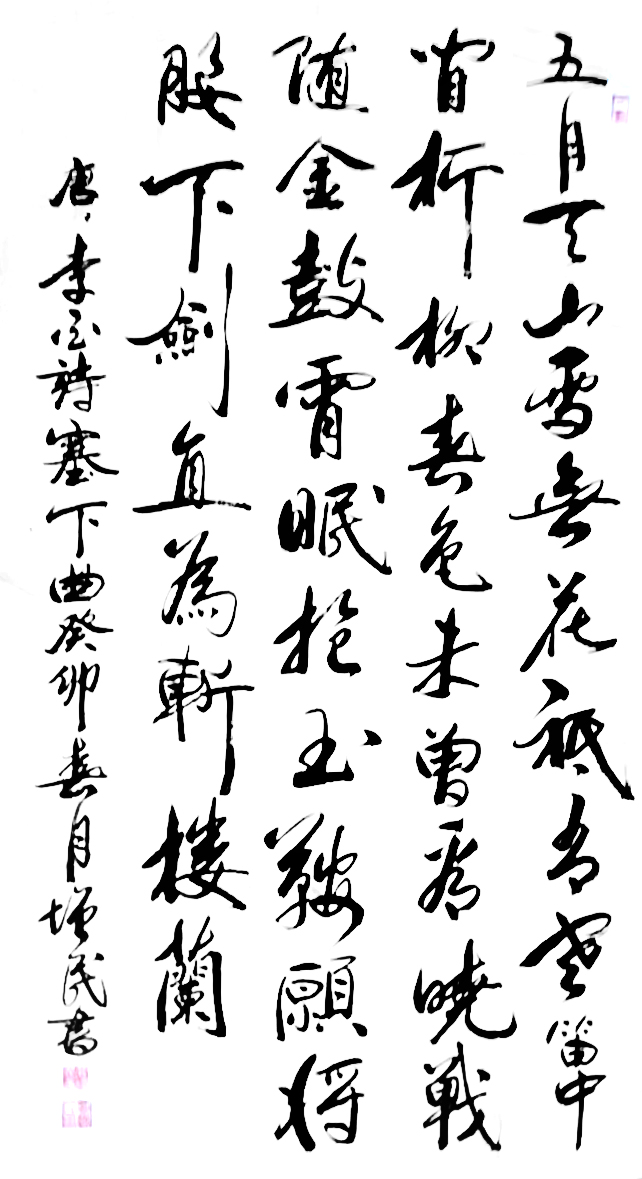 五月天山雪無花祗有寒笛中
聞折柳春色未曾看曉戰
随金鼓宵眠抱玉鞍願将
腰下劍直為斬樓蘭
唐、李白詩塞下曲癸卯春月增民書